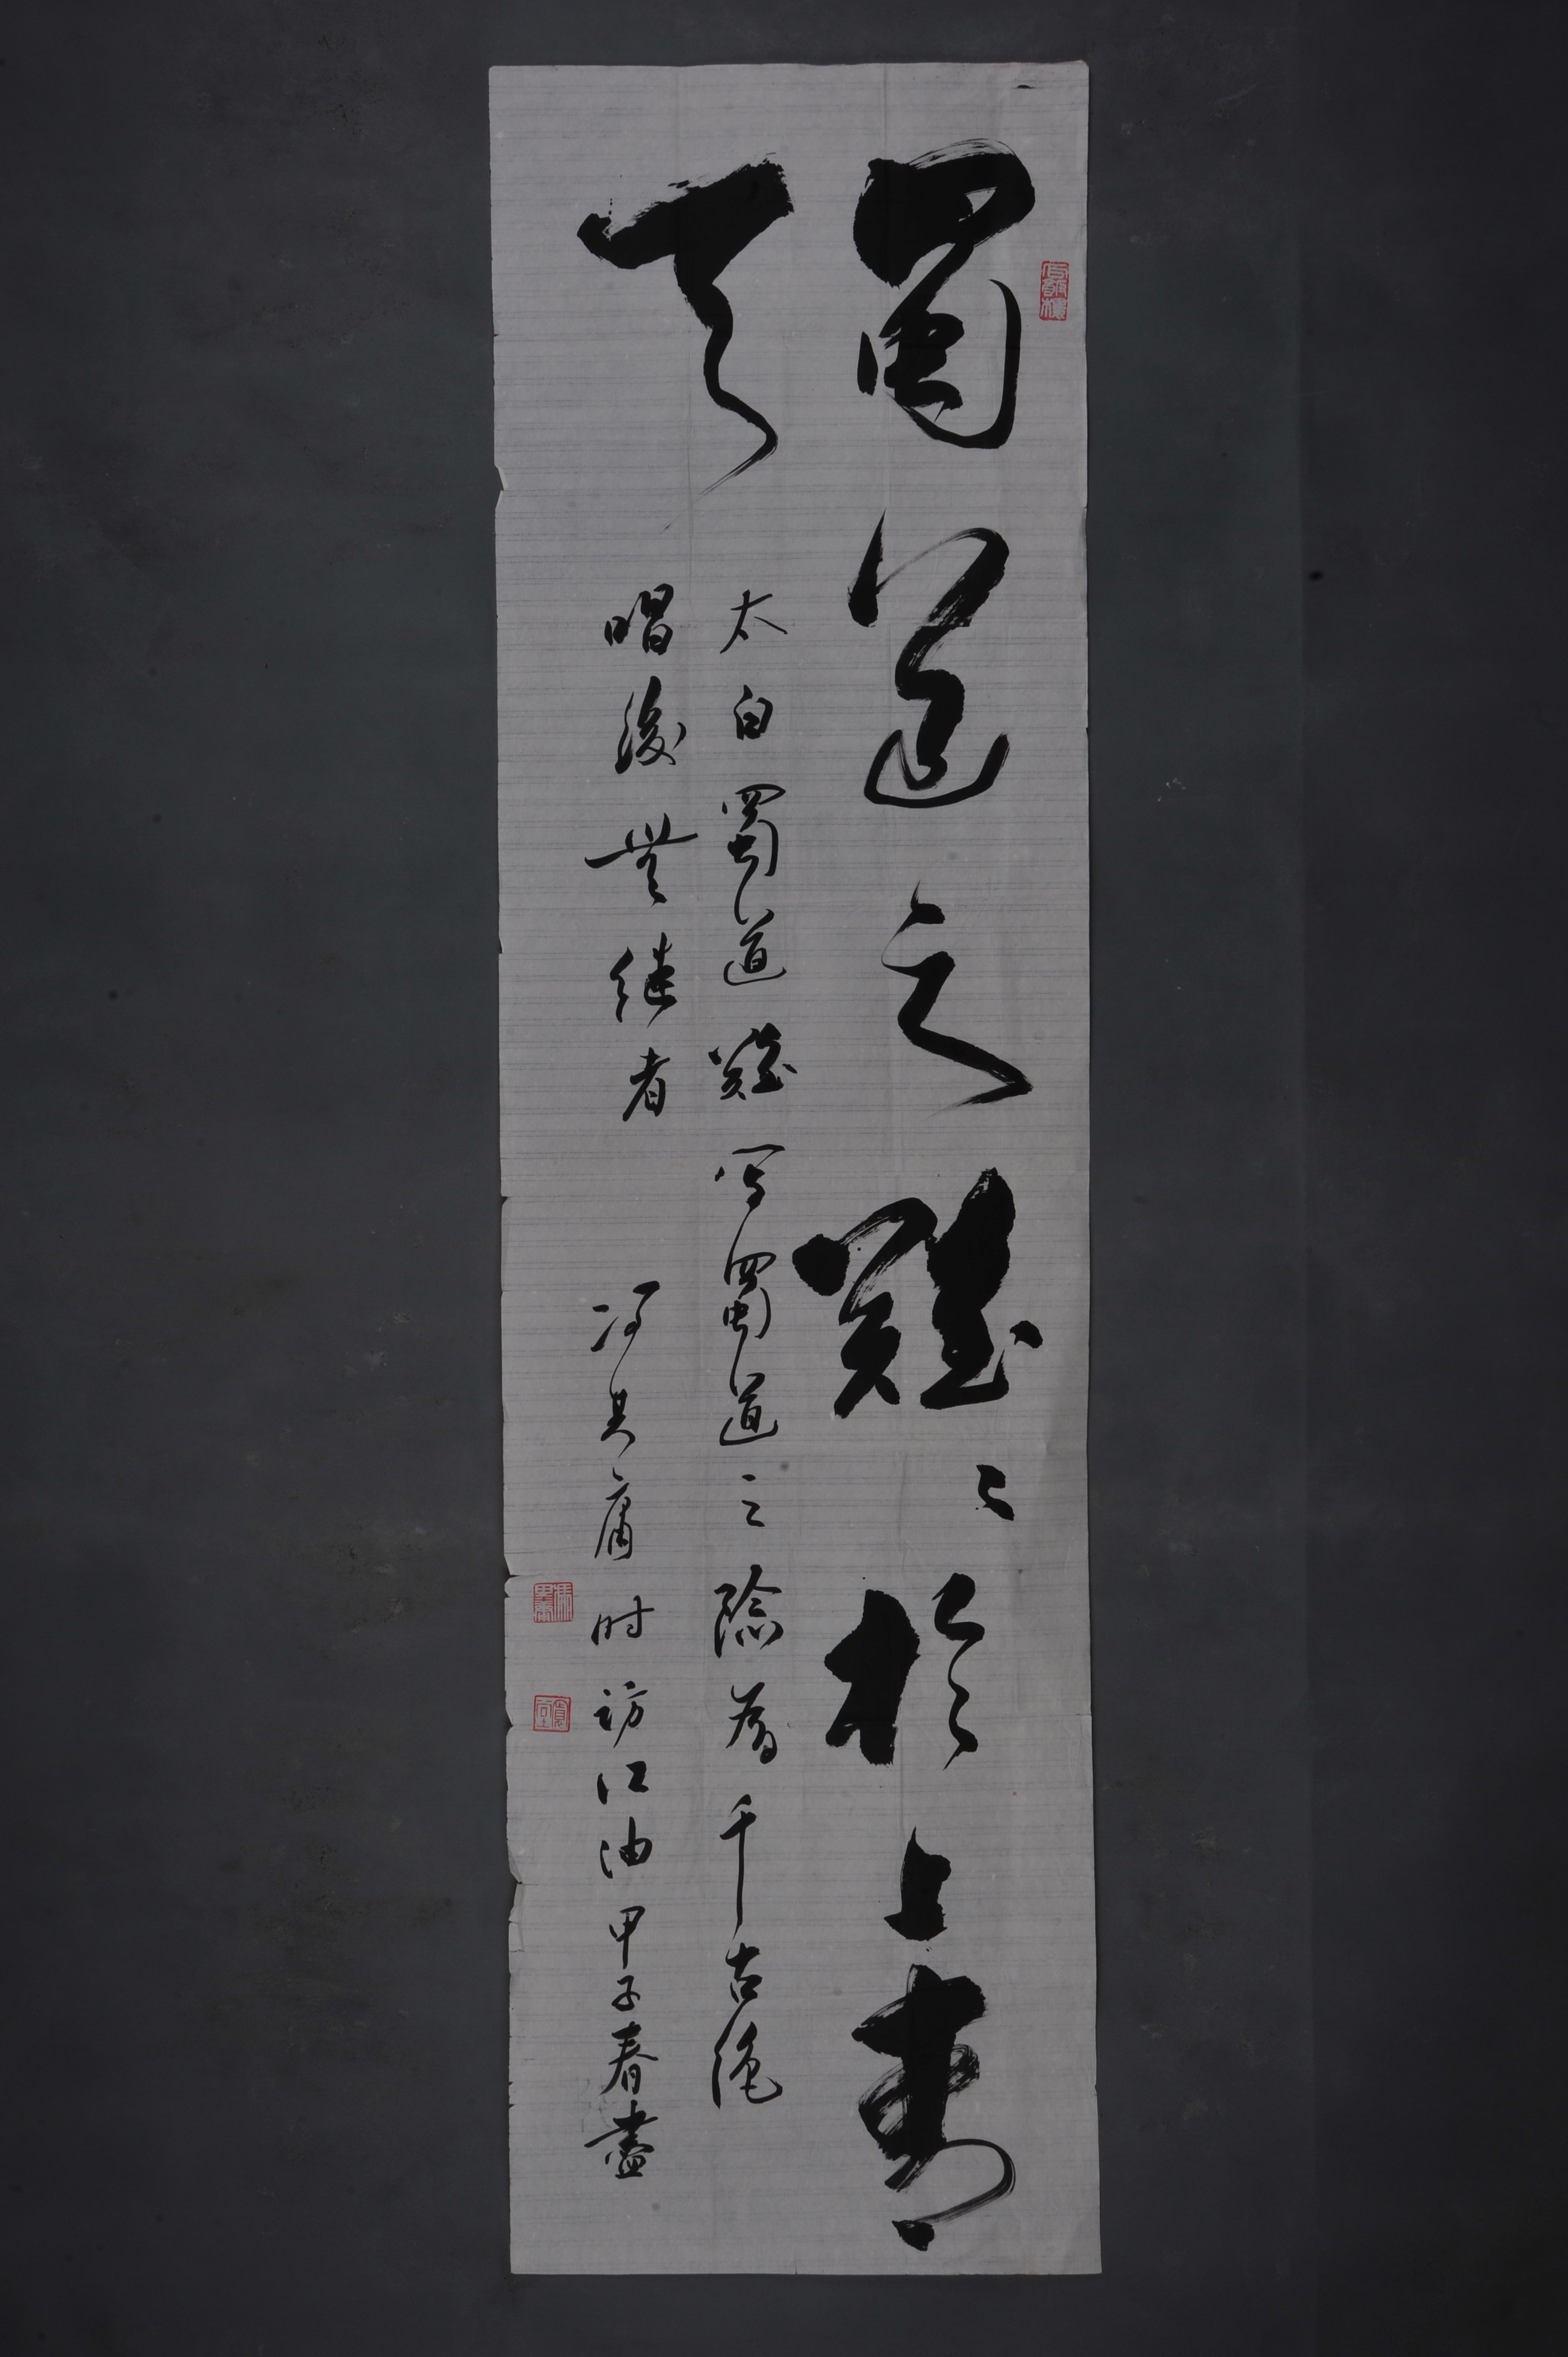 蜀道之難難於上青
天
太白蜀道難写蜀道之險為千古絕
唱後無继者
冯其庸时訪江油甲子春盡